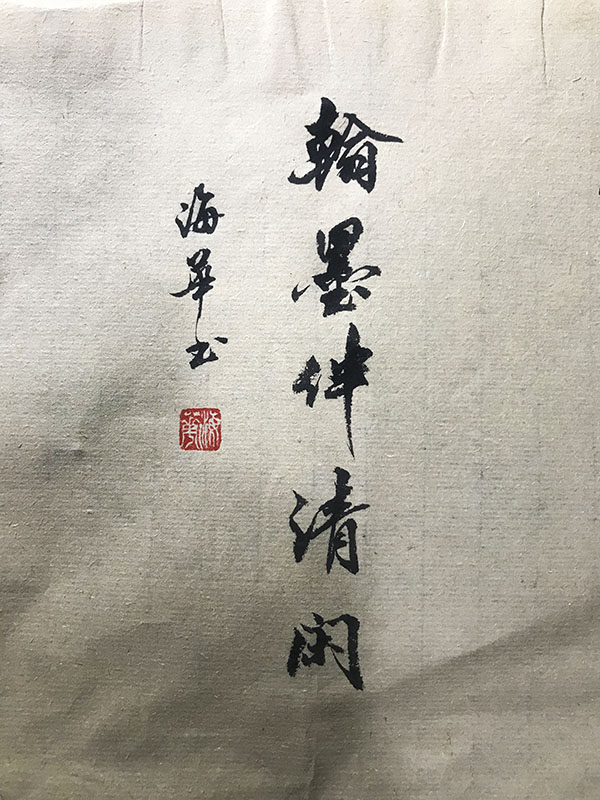 翰墨伴清闲
海華书
海华